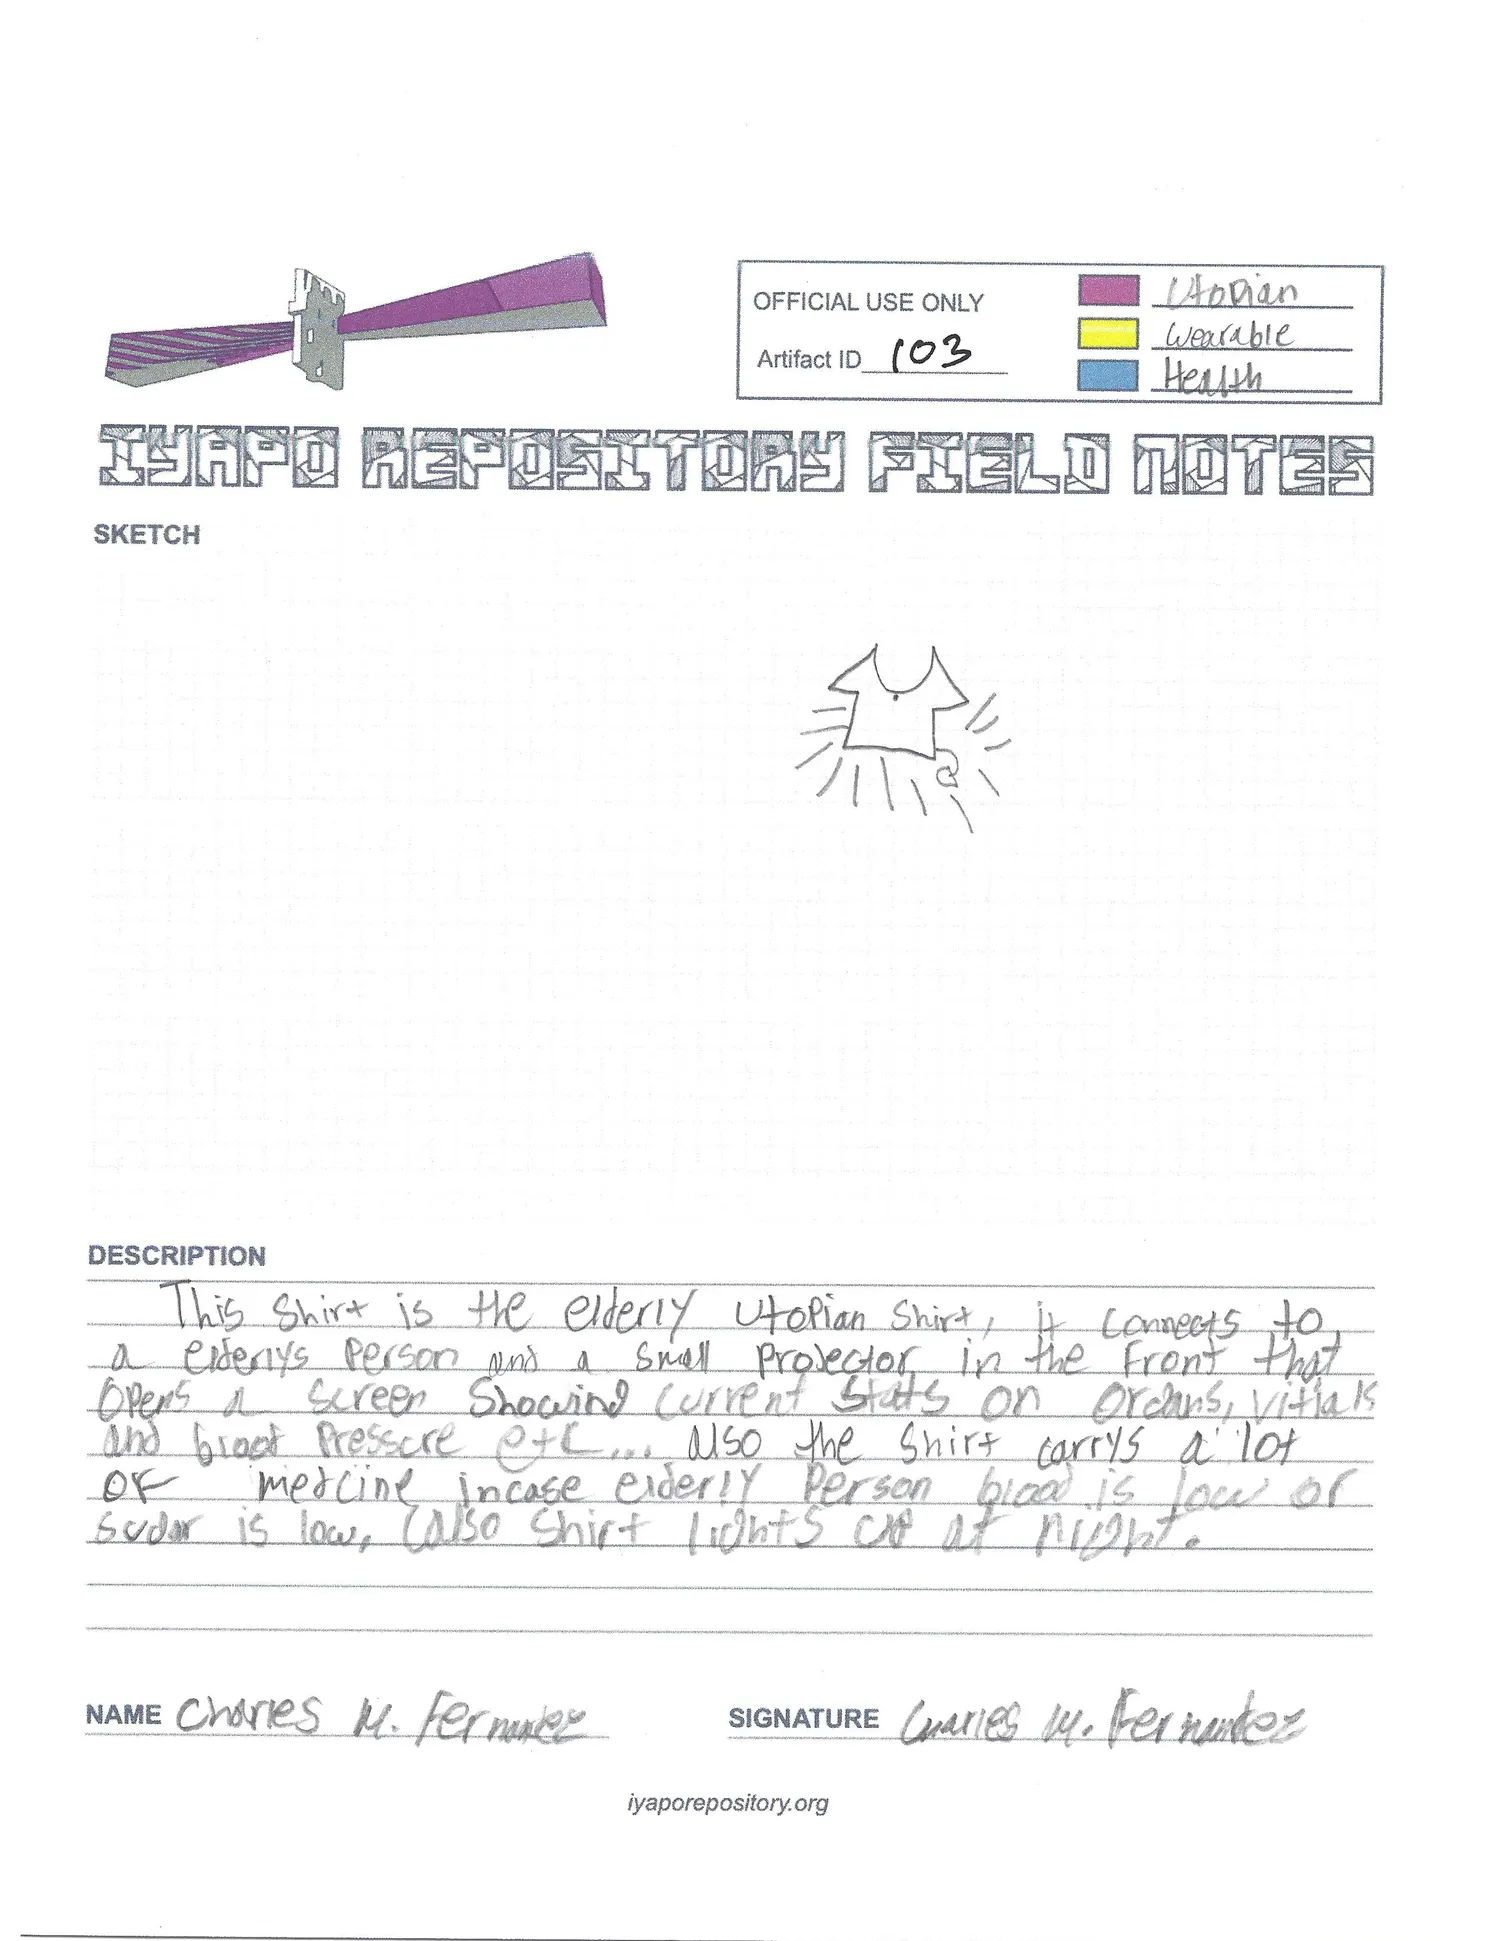 OFFICIAL USE ONLY
Artifact ID 103
Utopian
Wearable
Health
IYAPO REPOSITORY FIELD NOTES
SKETCH
DESCRIPTION
This shirt is the elderly utopian shirt, it connects to
a elderlys person and a small projector in the front that
opens a screen showing current stats on organs, vitials
and blood pressure etc... also the shirt carrys a lot
of medcine incase elderly person blood is low or
sudar is low, (also shirt lights up at night.
NAME Charles M. Fernandez
SIGNATURE Charles M. Fernandez
iyaporepository.org